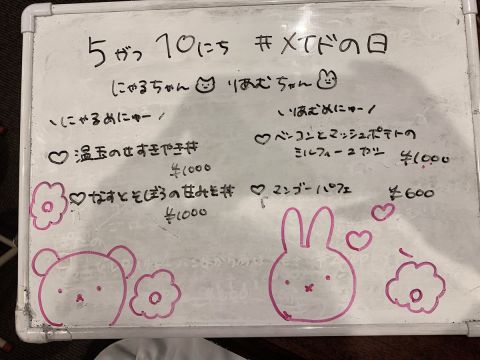 5がつ10にち #メイドの日
にゃるちゃん りあむちゃん
\にゃるめにゅー/
♡温玉のせすきやき丼
¥1000
♡なすとそぼろの甘みそ丼
¥1000
\りあむめにゅー/
♡ベーコンとマッシュポテトの
ミルフィーユカツ ¥1000
♡マンゴーパフェ ¥600